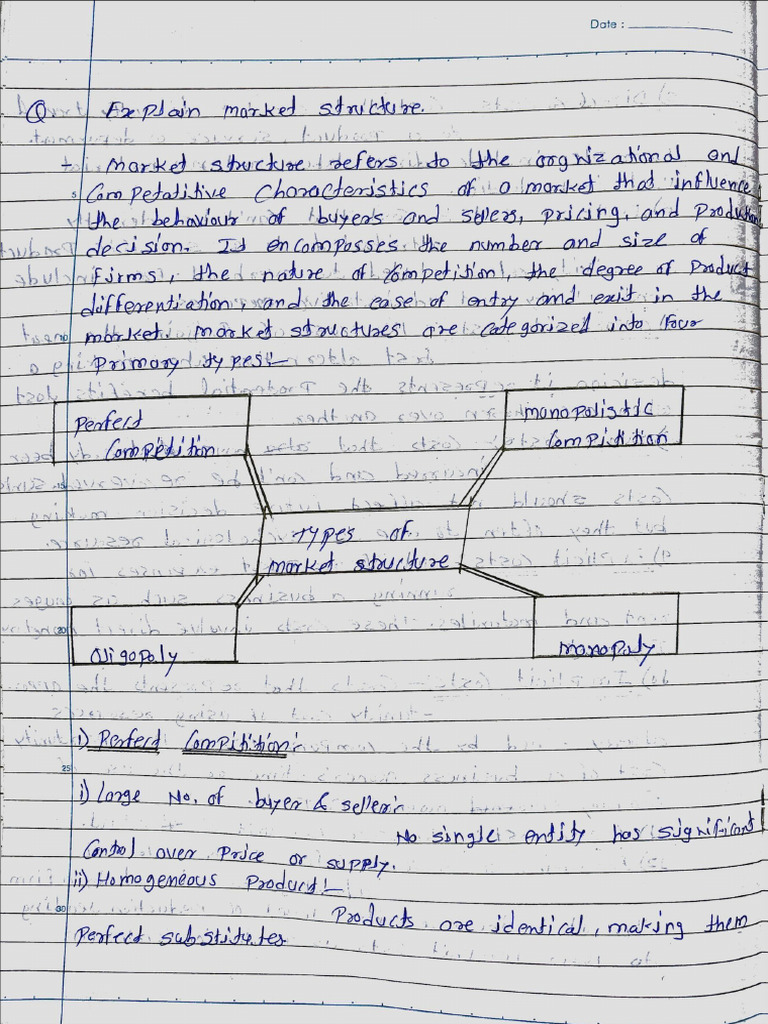 Date :
Q Explain market structure.
→ Market structure refers to the orgnizational and
5 Competatitive Characteristics of a market that influence
the behaviour of buyers and sellers, pricing, and Production
decision. It encompasses the number and size of
firms, the nature of Competition, the degree of Product
differentiation, and the ease of entry and exit in the
10 market. market structures are categorized into four
Primary types:-
Perfect
Compitition
monopolistic
Compitition
Types of
market structure
Oligopoly
monopoly
20
i) Perfect Compitition:-
25
i) Large No. of buyer & seller:-
No single entity has significant
Control over Price or supply.
ii) Homogeneous Product:-
30 Products are identical, making them
Perfect substitutes